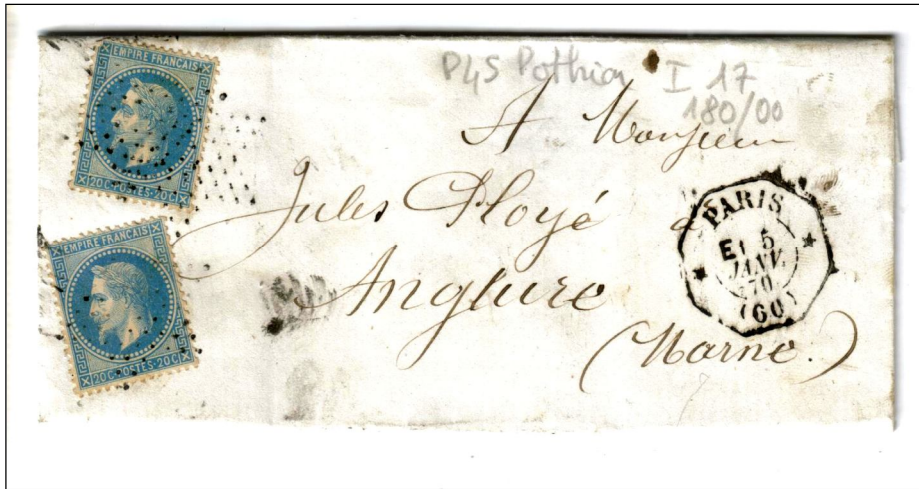 EMPIRE FRANCAIS
20 C. POSTES. 20 C
EMPIRE FRANCAIS
20 C. POSTES. 20 C
P45 Pothion I 17
180/00
A Monsieur
Jules Ployé à
Anglure
(Marne.)
PARIS
E1 5
JANV.
70
(60)